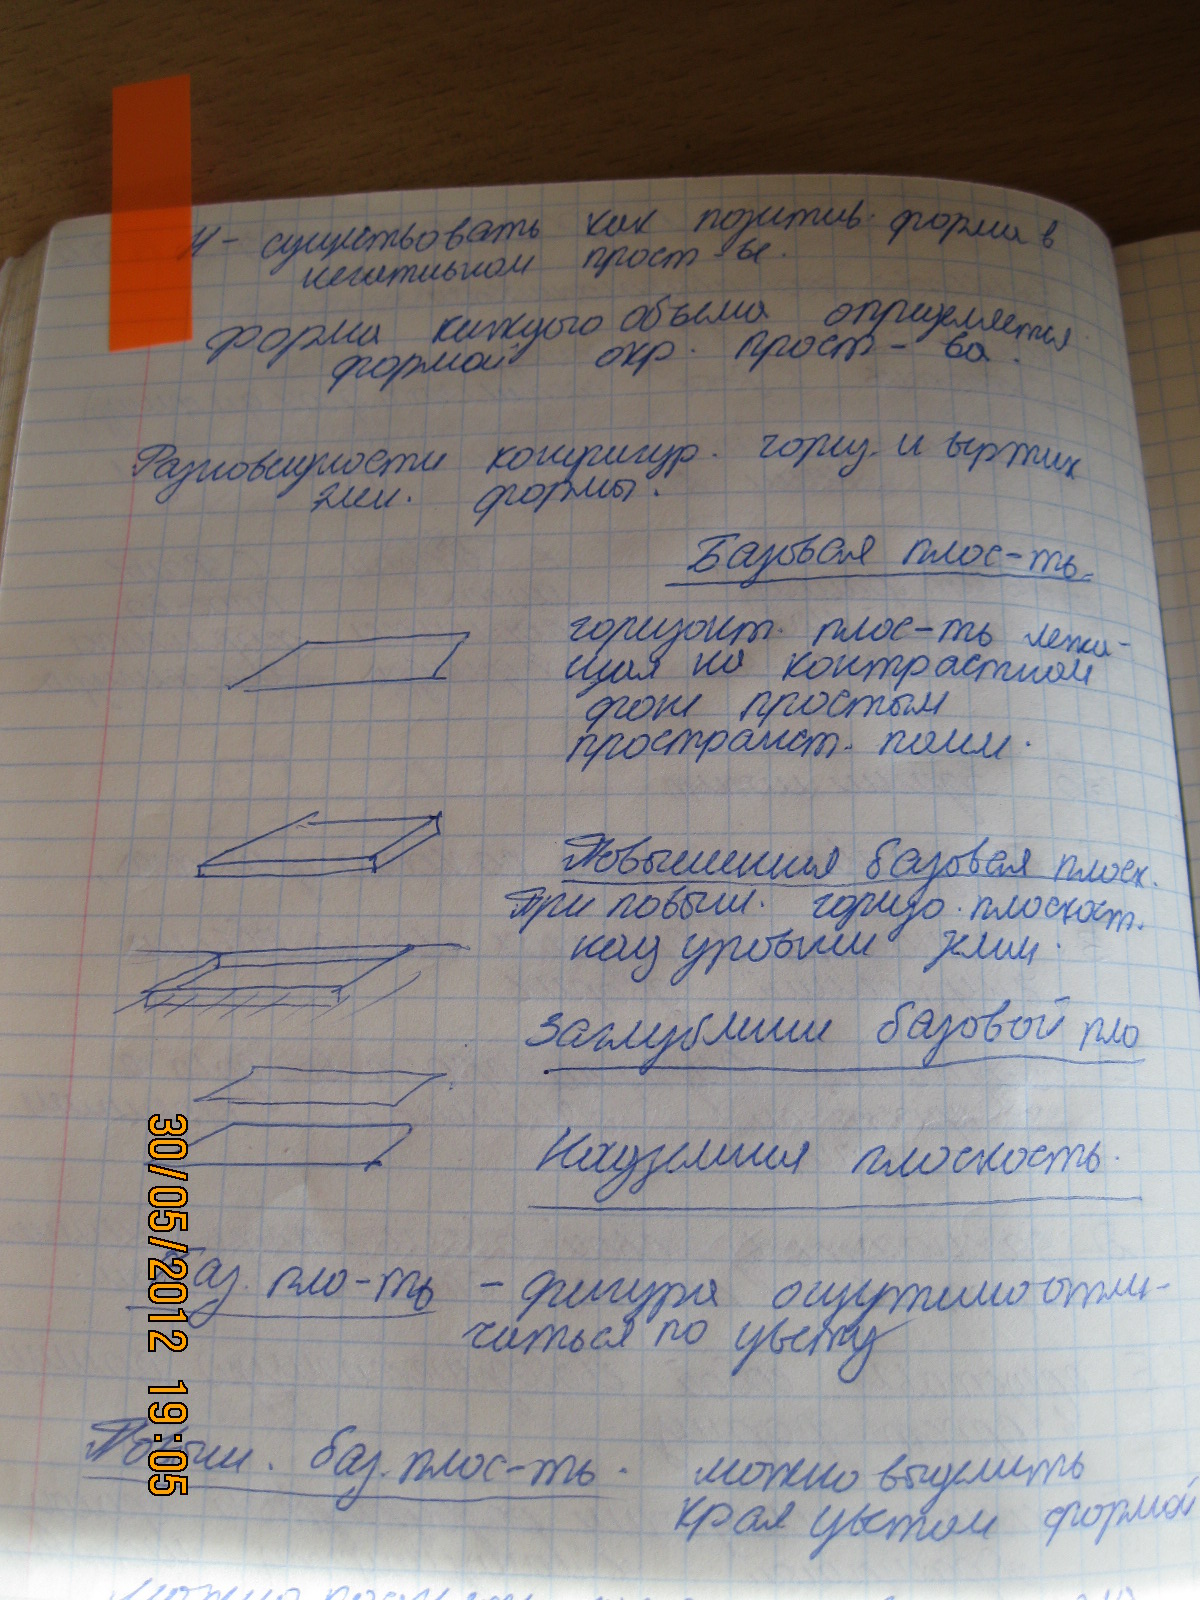 4 - существовать как позитив. форма в
негативном прост-ве.
форма каждого объёма определяется
формой окр. прост-ва.
Разновидности конфигур. гориз. и вертик
элем. формы.
Базовая плос-ть.
горизонт. плос-ть лежа-
щая на контрастном
фоне простым
пространст. полем.
Повышенная базовая плоск.
При повыш. горизо. плоскост.
над уровнем земли.
Заглубление базовой пло
Надземная плоскость.
Баз. пло-ть - фигура ощутимо отли-
чаться по цвету
Повыш. баз. плос-ть. можно выделить
края цветом формой
30/05/2012 19:05